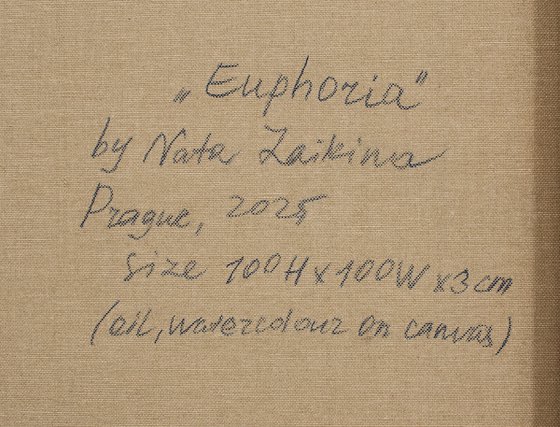 „Euphoria"
by Nata Zaikina
Prague, 2025
size 100H x 100W x 3 cm
(oil, watercolour on canvas)